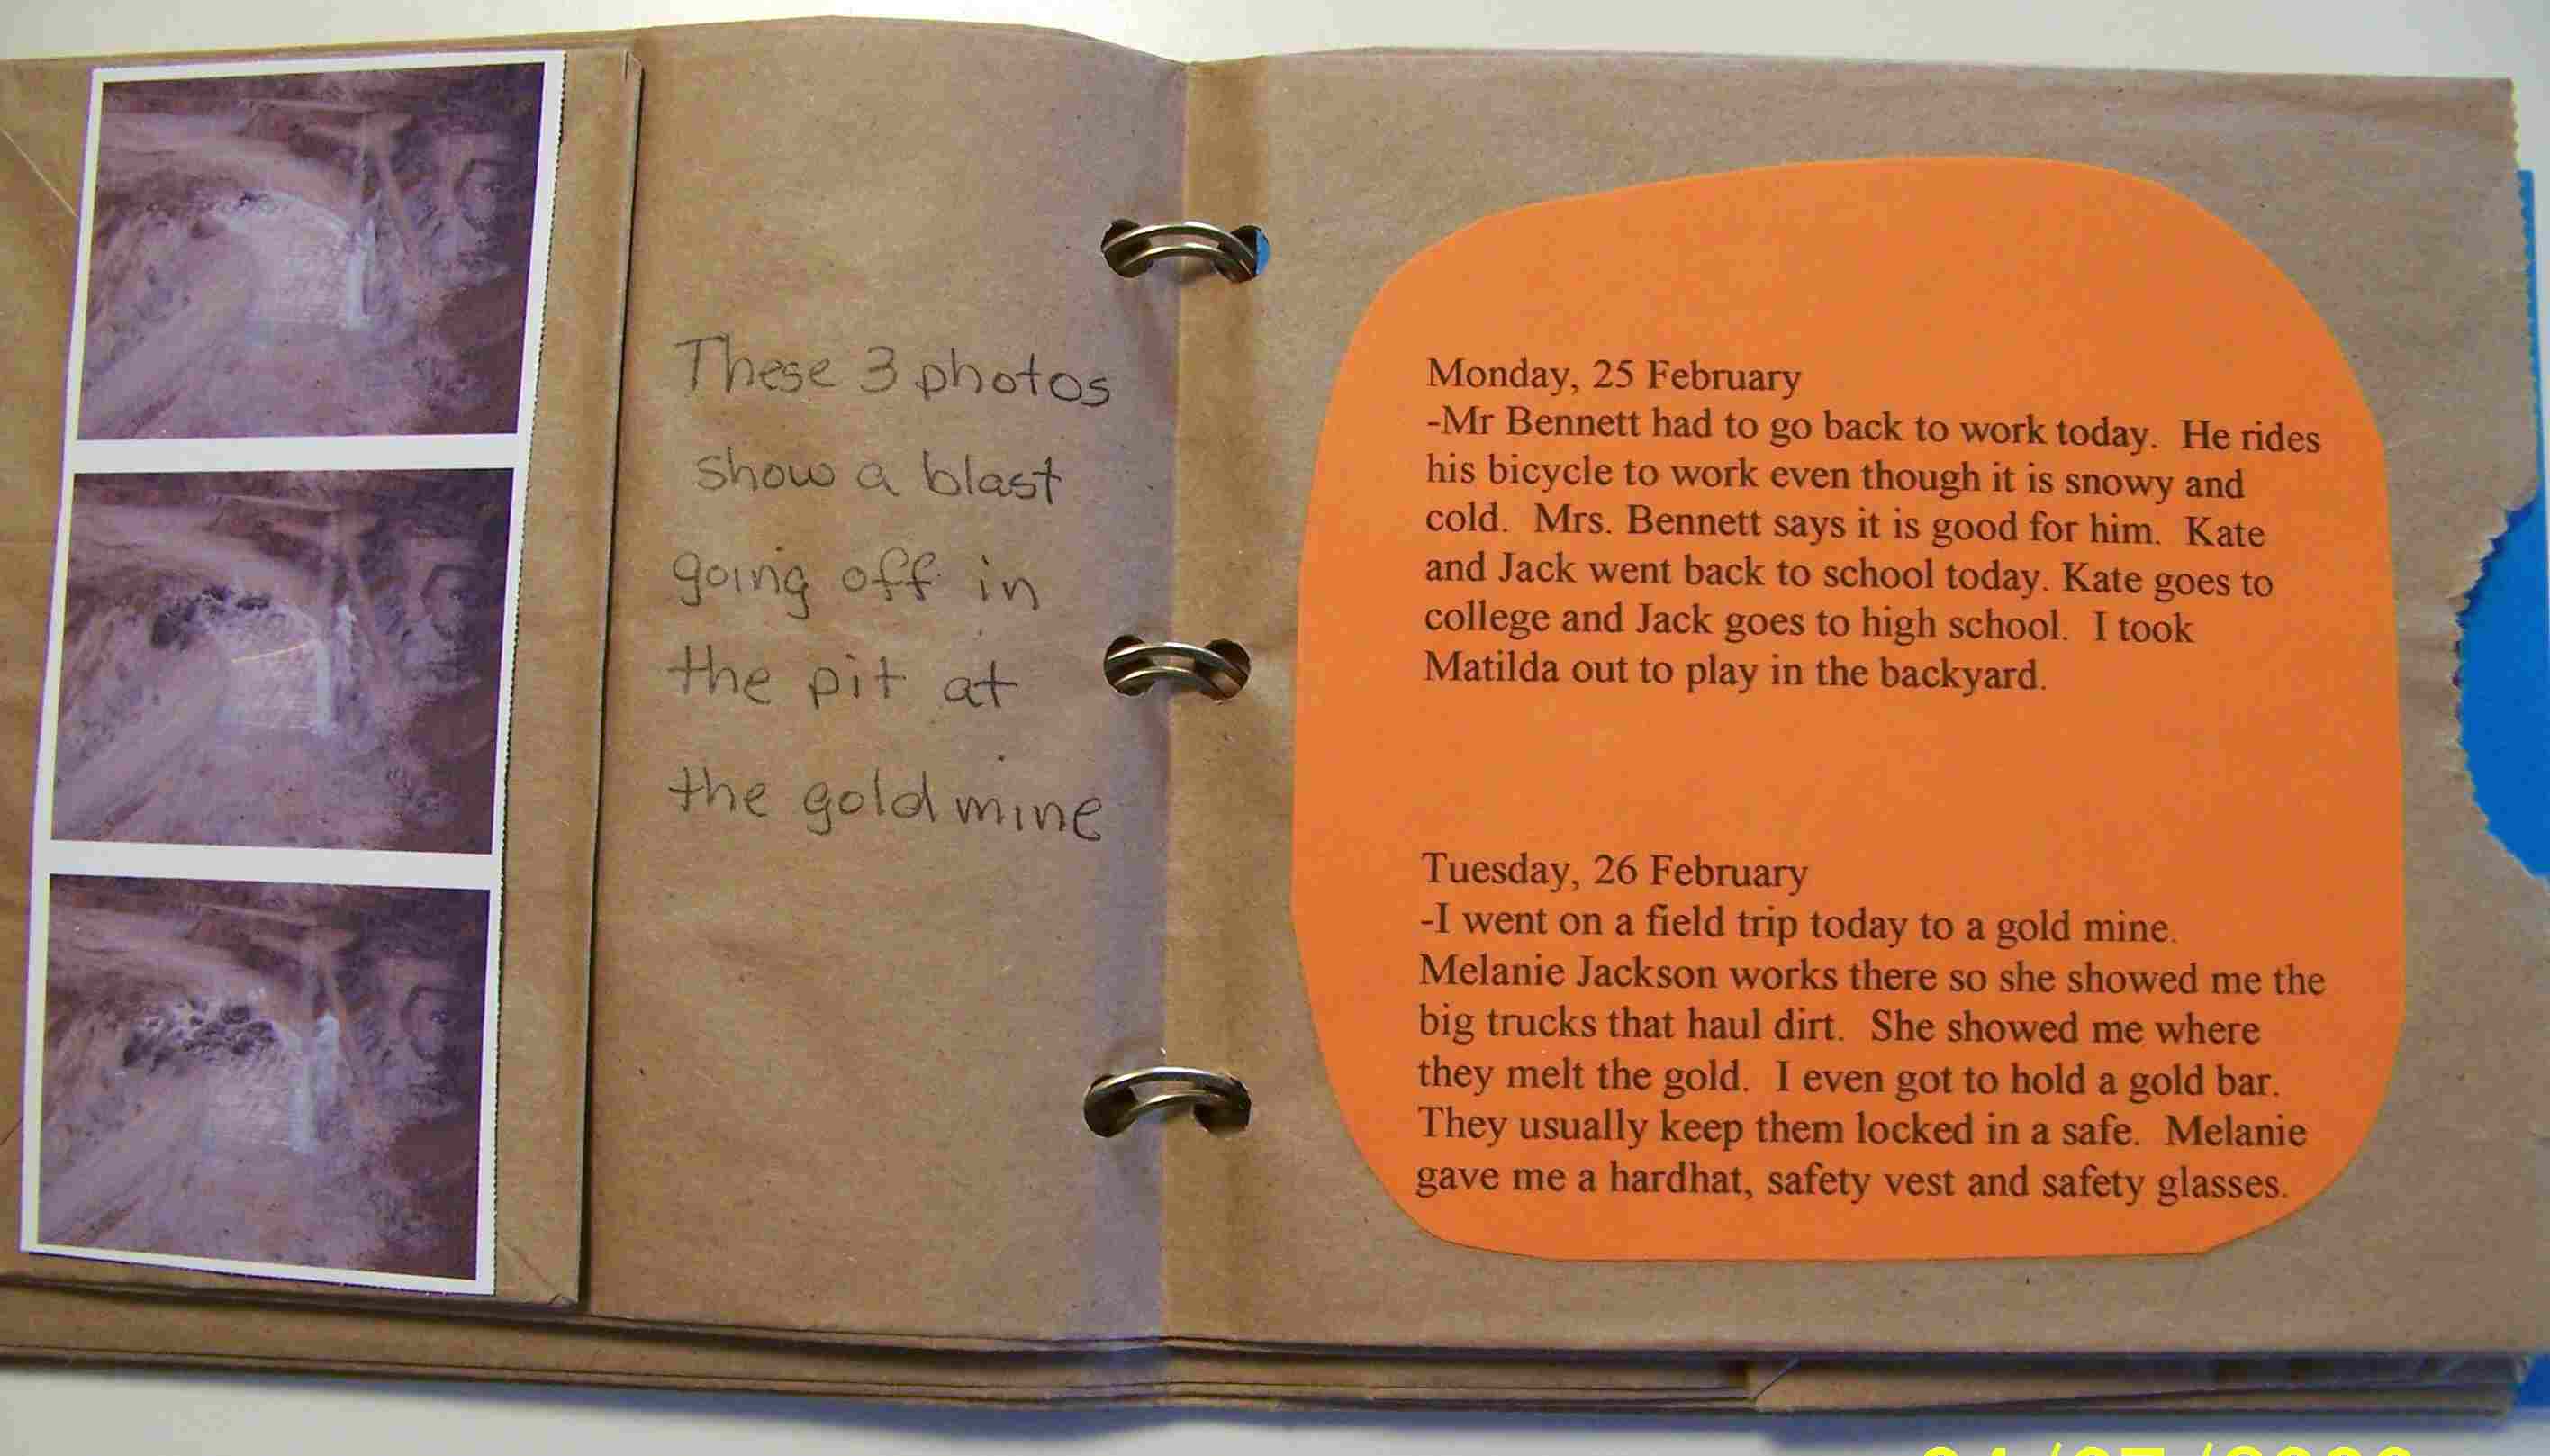 These 3 photos
show a blast
going off in
the pit at
the gold mine
Monday, 25 February
-Mr Bennett had to go back to work today. He rides
his bicycle to work even though it is snowy and
cold. Mrs. Bennett says it is good for him. Kate
and Jack went back to school today. Kate goes to
college and Jack goes to high school. I took
Matilda out to play in the backyard.
Tuesday, 26 February
-I went on a field trip today to a gold mine.
Melanie Jackson works there so she showed me the
big trucks that haul dirt. She showed me where
they melt the gold. I even got to hold a gold bar.
They usually keep them locked in a safe. Melanie
gave me a hardhat, safety vest and safety glasses.